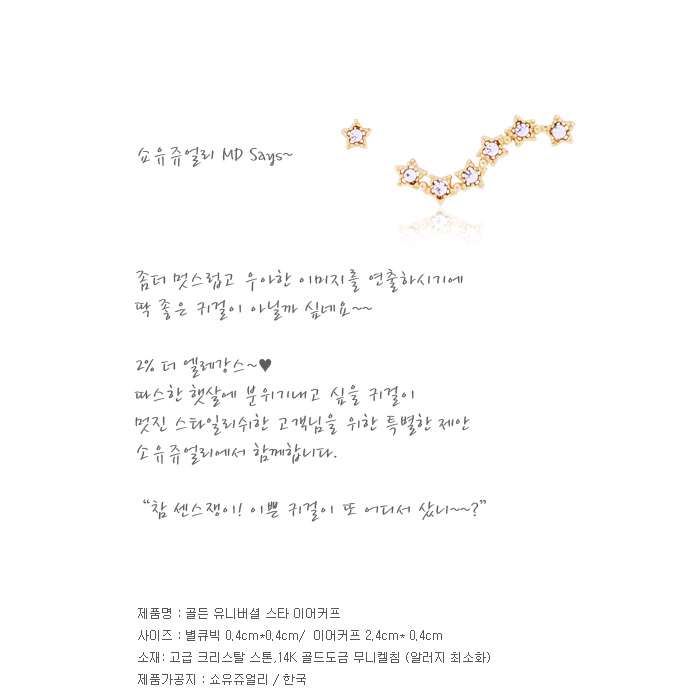 쇼유쥬얼리 MD Says~
좀더 멋스럽고 우아한 이미지를 연출하시기에
딱 좋은 귀걸이 아닐까 싶네요~~
2% 더 엘레강스~♥
따스한 햇살에 분위기내고 싶을 귀걸이
멋진 스타일리쉬한 고객님을 위한 특별한 제안
쇼유쥬얼리에서 함께합니다.
“참 센스쟁이! 이쁜 귀걸이 또 어디서 샀니~~?”
제품명 : 골든 유니버셜 스타 이어커프
사이즈 : 별큐빅 0.4cm*0.4cm/ 이어커프 2.4cm* 0.4cm
소재: 고급 크리스탈 스톤,14K 골드도금 무니켈침 (알러지 최소화)
제품가공지 : 쇼유쥬얼리 / 한국